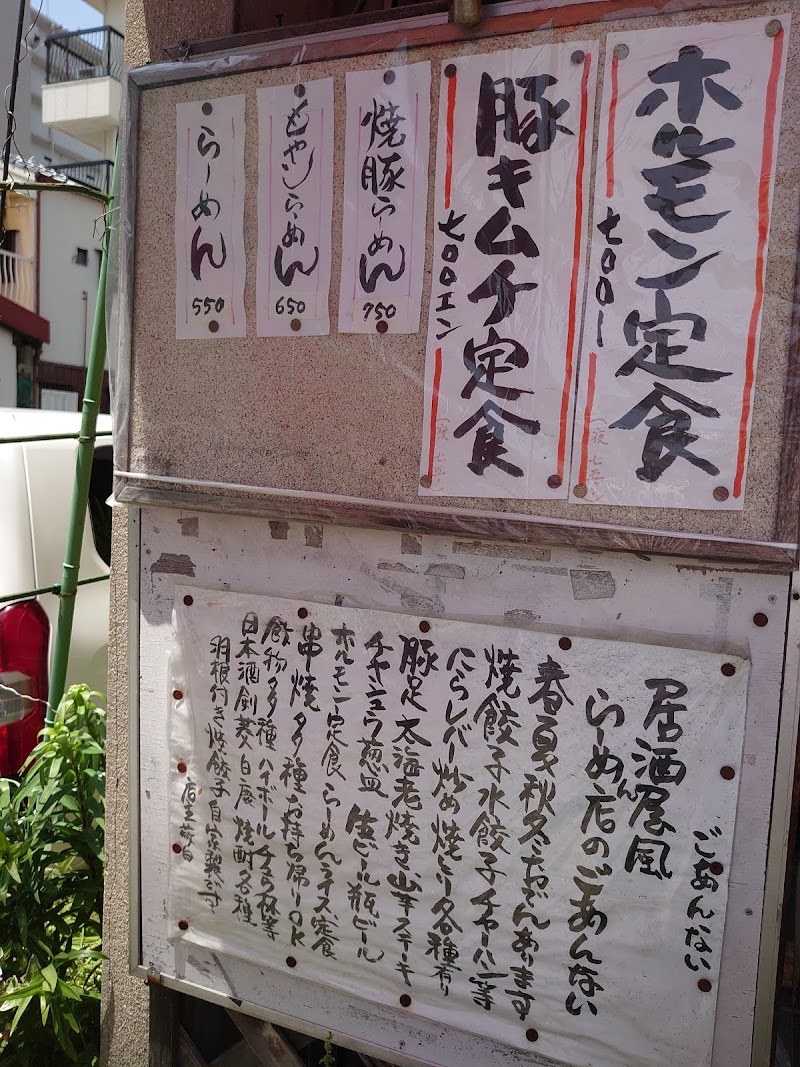 ホルモン定食
七００ー
(夜 七五〇)
豚キムチ定食
七００エン
焼豚らーめん
750
もやしらーめん
650
らーめん
550
ごあんない
居酒屋風
らーめん店のごあんない
春夏秋冬おでんあります
焼餃子水餃子チャーハン等
にらレバー炒め焼とり各種有り
豚足大海老焼き、山芋ステーキ
チャシュウ葱皿 生ビール瓶ビール
ホルモン定食 らーめんライス、定食
串焼多種お持ち帰りOK
飲物多種ハイボールチュウ杯等
日本酒剣菱白鹿焼酎各種
羽根付き焼餃子自家製です
店主